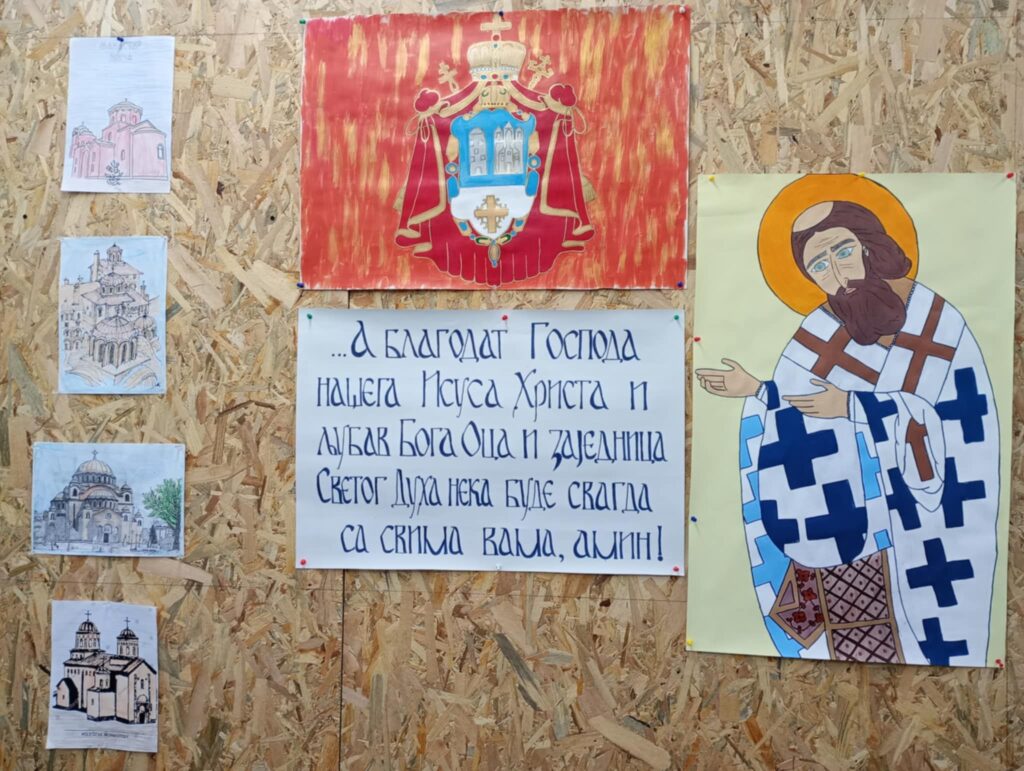 ...А БЛАГОДАТ ГОСПОДА
НАШЕГА ИСУСА ХРИСТА И
ЉУБАВ БОГА ОЦА И ЗАЈЕДНИЦА
СВЕТОГ ДУХА НЕКА БУДЕ СВАГДА
СА СВИМА ВАМА, АМИН!